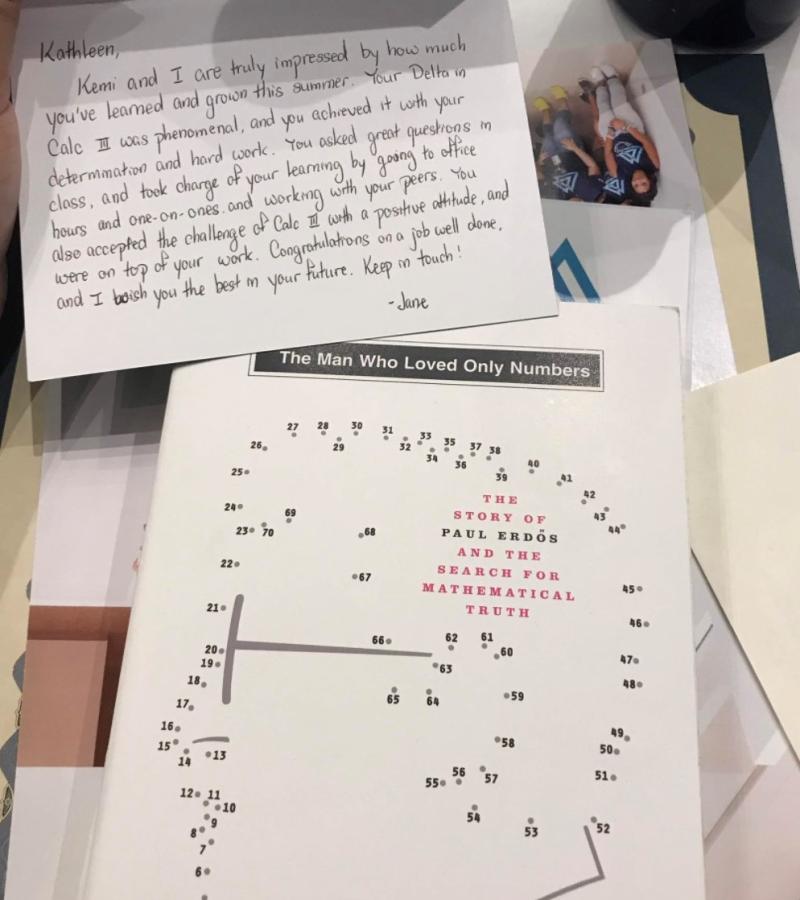 Kathleen,
Kemi and I are truly impressed by how much
you've learned and grown this summer. Your Delta in
Calc III was phenomenal, and you achieved it with your
determination and hard work. You asked great questions in
class, and took charge of your learning by going to office
hours and one-on-ones. and working with your peers. You
also accepted the challenge of Calc II with a positive attitude, and
were on top of your work. Congratulations on a job well done,
and I wish you the best in your future. Keep in touch!
-Jane
The Man Who Loved Only Numbers
27 28 30 31
26 29 32 33 35 37 38
34 36 39 40 41
25
42
24 69 43
23 70 68 44
THE
STORY OF
PAUL ERDŐS
AND THE
SEARCH FOR
MATHEMATICAL
TRUTH
22
67
45
21
46
66 62 61
20 60
19 63 47
18 48
65 64 59
17
16 49
15 13 58 50
14
56 57 51
55
12 11
10 54
9 53 52
8
7
6